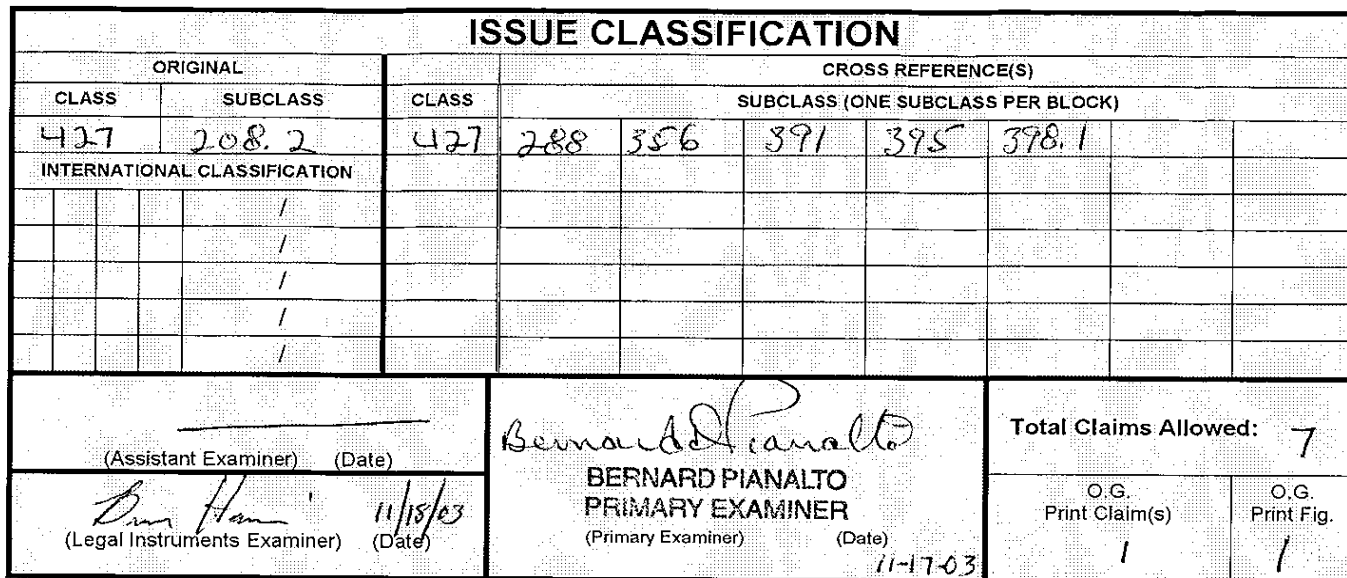 ISSUE CLASSIFICATION
ORIGINAL CROSS REFERENCE(S)
CLASS SUBCLASS CLASS SUBCLASS (ONE SUBCLASS PER BLOCK)
427 208.2 427 288 356 391 395 398.1
INTERNATIONAL CLASSIFICATION
/
/
/
/
/
(Assistant Examiner) (Date)
11/18/03
(Legal Instruments Examiner) (Date)
Bernard Pianalto
BERNARD PIANALTO
PRIMARY EXAMINER
(Primary Examiner) (Date)
11-17-03
Total Claims Allowed: 7
O.G. Print Claim(s)
1
O.G. Print Fig.
1